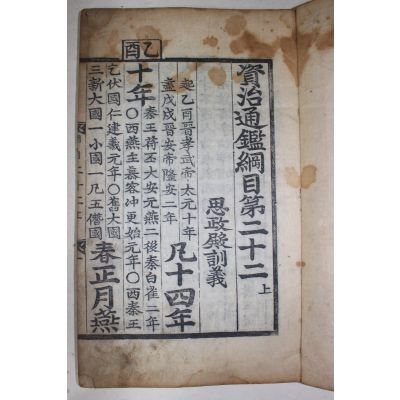 資治通鑑綱目第二十二 上
思政殿訓義
起乙酉晉孝武帝太元十年
盡戊戌晉安帝隆安二年
凡十四年
乙酉
十年
秦王苻丕大安元燕二後秦白雀二年
〇西燕主慕容冲更始元年〇西秦王
乞伏國仁建義元年〇舊大國
三新大國一小國一凡五僭國
春正月燕